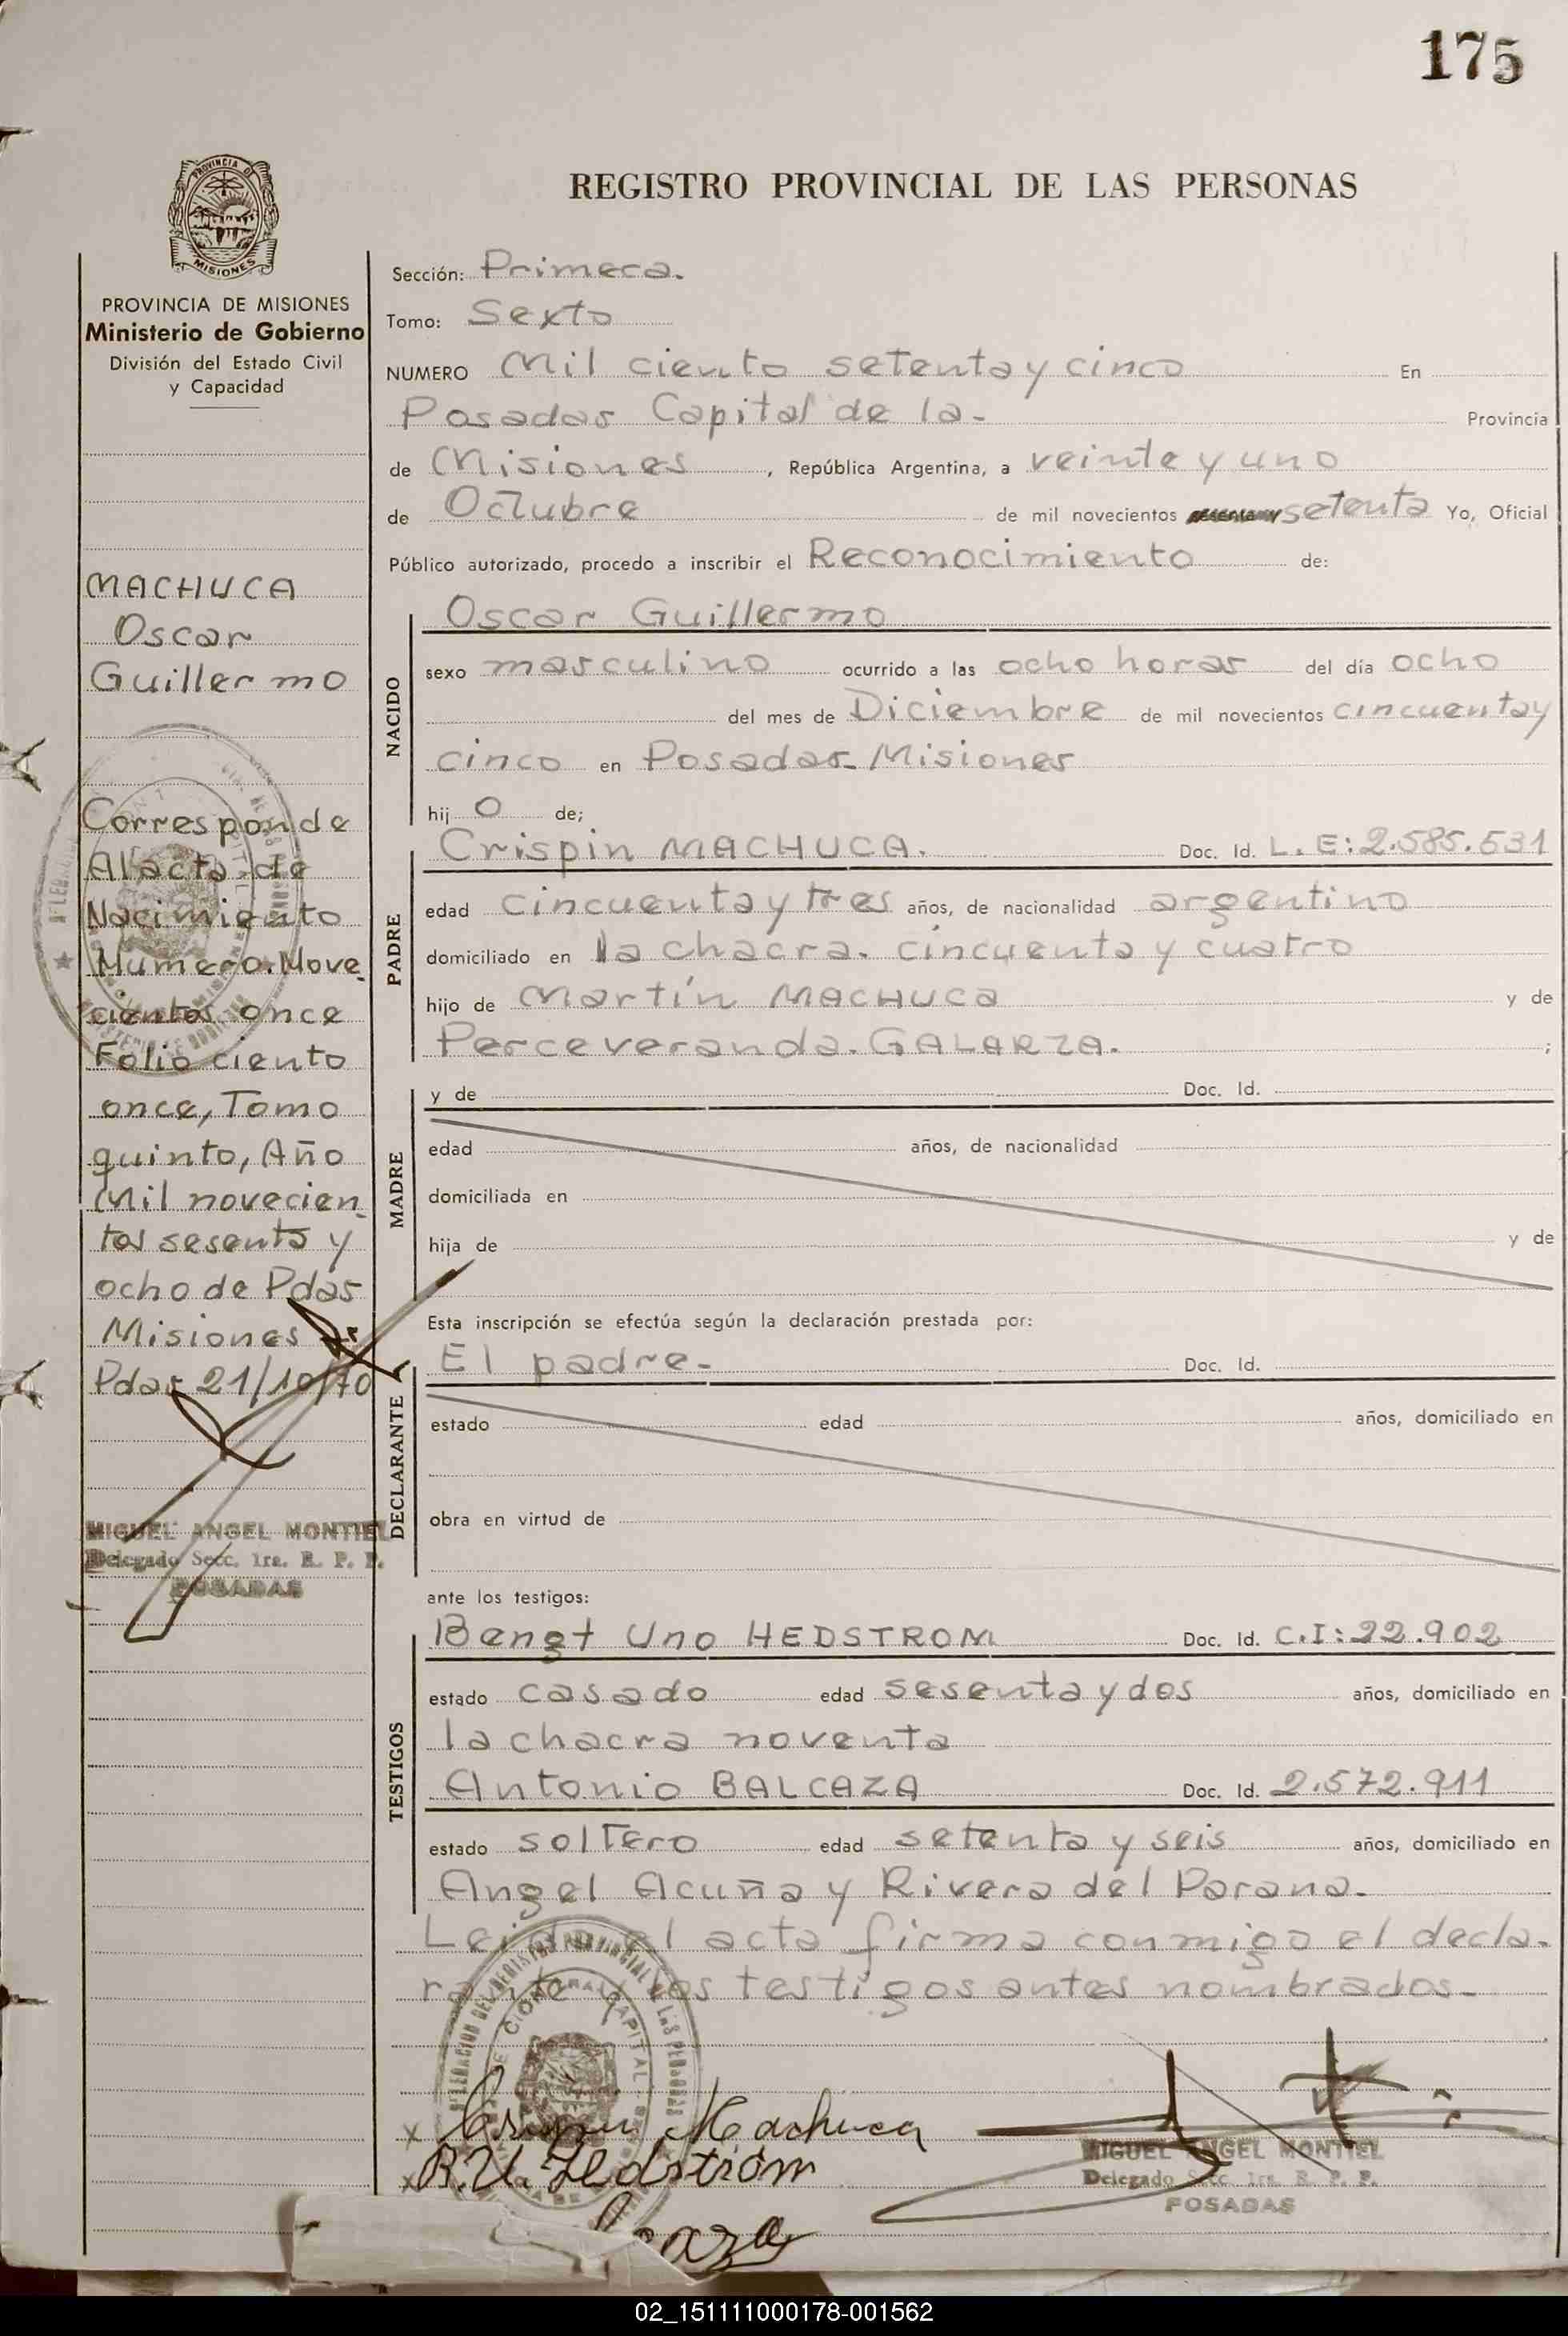 175
PROVINCIA DE
MISIONES
REGISTRO PROVINCIAL DE LAS PERSONAS
PROVINCIA DE MISIONES
Ministerio de Gobierno
División del Estado Civil
y Capacidad
MACHUCA
Oscar
Guillermo
Corresponde
Al acta de
Nacimiento
Numero. Nove
cientos once
Folio ciento
once, Tomo
quinto, Año
Mil novecien
tos sesenta y
ocho de Pdas
Misiones
Pdas 21/10/70
MIGUEL ANGEL MONTIEL
Delegado Secc. 1ra. R. P. P.
POSADAS
Sección: Primera.
Tomo: Sexto
NUMERO Mil ciento setenta y cinco En
Posadas Capital de la - Provincia
de Misiones, República Argentina, a veinte y uno
de Octubre de mil novecientos setenta Yo, Oficial
Público autorizado, procedo a inscribir el Reconocimiento de:
NACIDO
Oscar Guillermo
sexo masculino ocurrido a las ocho horas del día ocho
del mes de Diciembre de mil novecientos cincuenta y
cinco en Posadas - Misiones
hij o de;
PADRE
Crispin MACHUCA. Doc. Id. L. E: 2.585.531
edad cincuenta y tres años, de nacionalidad argentino
domiciliado en la chacra. cincuenta y cuatro
hijo de Martín MACHUCA y de
Perceveranda. GALARZA. ;
MADRE
y de Doc. Id.
edad años, de nacionalidad
domiciliada en
hija de y de
Esta inscripción se efectúa según la declaración prestada por:
DECLARANTE
El padre - Doc. Id.
estado edad años, domiciliado en
obra en virtud de
ante los testigos:
TESTIGOS
Bengt Uno HEDSTROM Doc. Id. C.I: 22.902
estado casado edad sesenta y dos años, domiciliado en
la chacra noventa
Antonio BALCAZA Doc. Id. 2.572.911
estado soltero edad setenta y seis años, domiciliado en
Angel Acuña y Rivera del Parana.
Leida el acta firma conmigo el decla-
rante y los testigos antes nombrados -
x Crispin Machuca
x B.U. Hedström
MIGUEL ANGEL MONTIEL
Delegado Secc. 1ra. R. P. P.
POSADAS
02_151111000178-001562